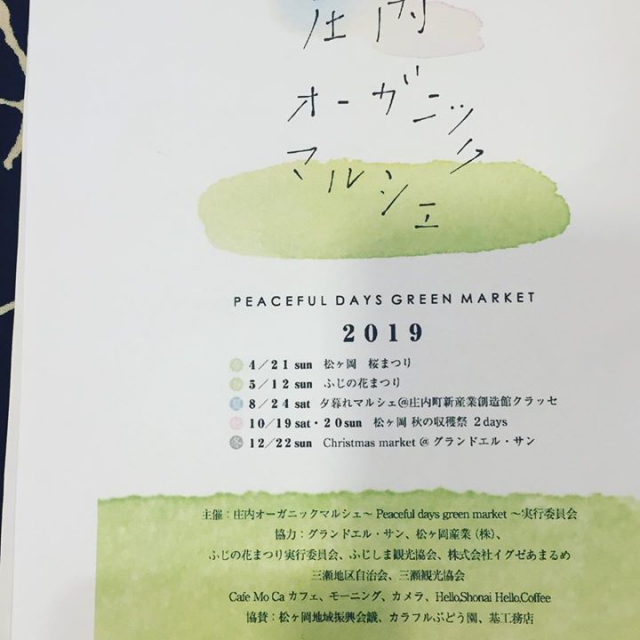 庄内
オーガニック
マルシェ
PEACEFUL DAYS GREEN MARKET
2019
春 4/21 sun 松ヶ岡 桜まつり
春 5/12 sun ふじの花まつり
夏 8/24 sat 夕暮れマルシェ@庄内町新産業創造館クラッセ
秋 10/19 sat・20 sun 松ヶ岡 秋の収穫祭 2days
冬 12/22 sun Christmas market @ グランドエル・サン
主催：庄内オーガニックマルシェ〜 Peaceful days green market 〜実行委員会
協力：グランドエル・サン、松ヶ岡産業（株）、
ふじの花まつり実行委員会、ふじしま観光協会、株式会社イグゼあまるめ
三瀬地区自治会、三瀬観光協会
Cafe Mo Ca カフェ、モーニング、カメラ、Hello,Shonai Hello,Coffee
協賛：松ヶ岡地域振興会議、カラフルぶどう園、基工務店